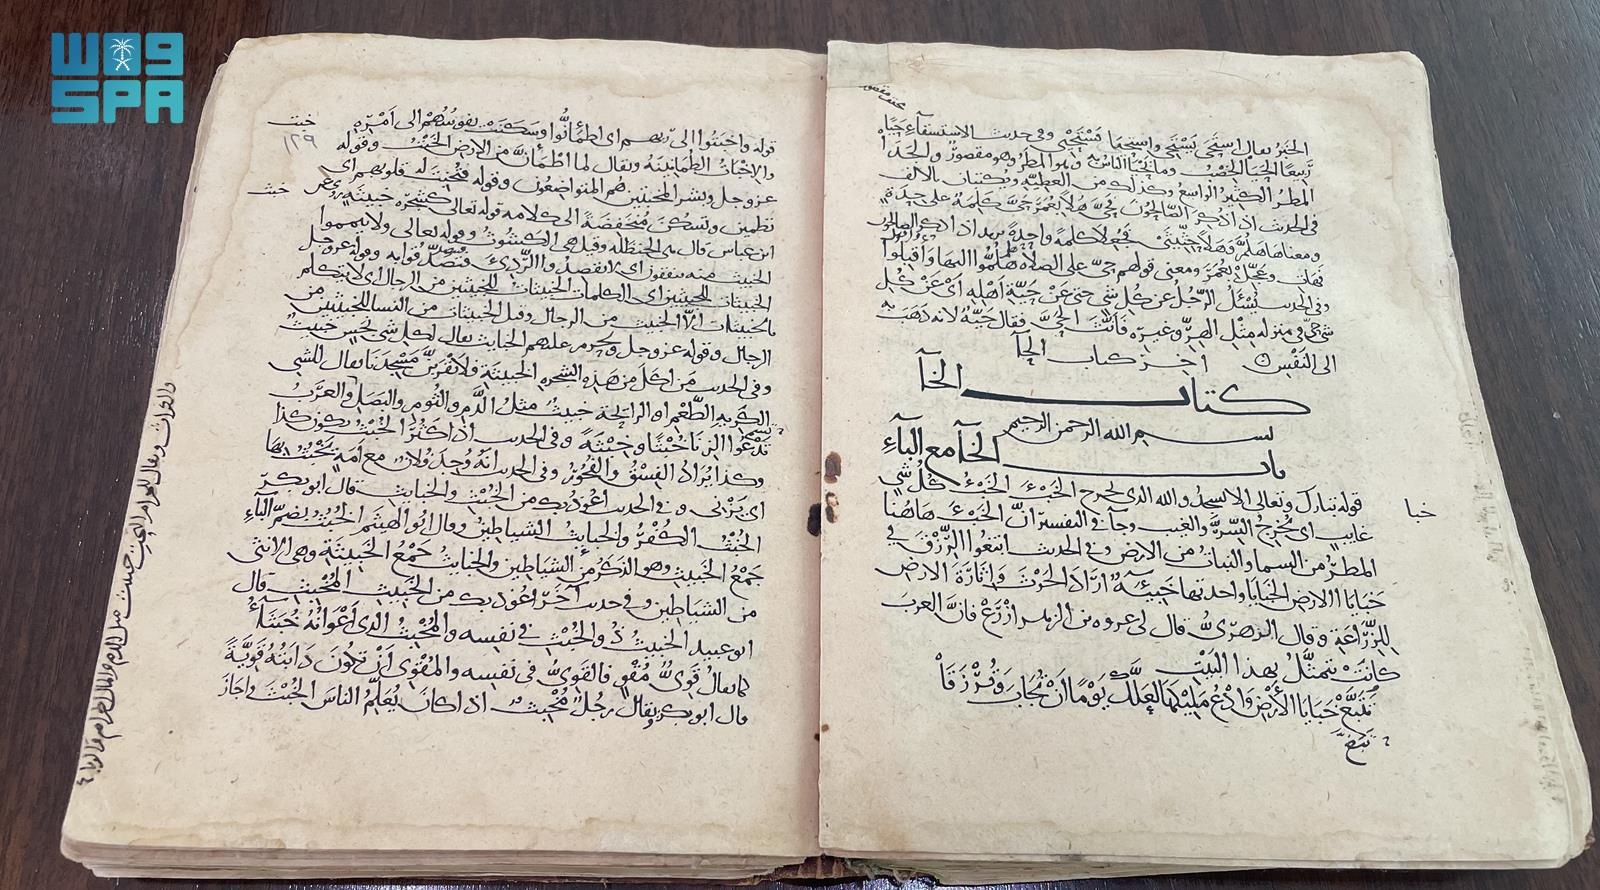 واس
SPA
الحيا يقال استحى يستحي واستحيا يستحيي وفي حديث الاستسقاء حيا
ربيعا الحيا الخصب وما يحيا الناس به وهو المطر وهو مقصور والجدا
المطر الكثير الواسع وكذلك من العطية ويكتبان بالالف
في الحديث اذا ذكر الصالحون فحي هلا بعمر حي كلمة على حدة
ومعناها هلم وهلا حثيثى فجعلا كلمة واحدة يريد اذا ذكر الصالحون
فهات وعجل بعمر ومعنى قولهم حي على الصلاة هلموا اليها واقبلوا
وفي الحديث يسئل الرجل عن كل شي حتى عن حية اهله اي عن كل
شي حي في منزله مثل الهر وغيره فانث الحي فقال حية لانه ذهب به
الى النفس اخر كتاب الحآ
كتاب الخآ
بسم الله الرحمن الرحيم
باب الخآ مع البآء
خبا
قوله تبارك وتعالى الا يسجدوا لله الذي يخرج الخبء الخبء كل شي
غايب اي يخرج السر والغيب وجآ في التفسير ان الخبء هاهنا
المطر من السما والنبات من الارض وفي الحديث ابتغوا الرزق في
خبايا الارض الخبايا واحدتها خبيئة اراد الحرث واثارة الارض
للزراعة وقال الزهري قال لي عروه بن الزبير ازرع فان العرب
كانت يتمثل بهذا البيت
تتبع خبايا الارض وادع مليكها لعلك يوما ان تجاب وترزقا
خبت
١٢٩
قوله واخبتوا الى ربهم اي اطمأنوا وسكنت نفوسهم الى امره
والاخبات الطمانينة ويقال لما اطمأن من الارض الخبت وقوله
عز وجل وبشر المخبتين هم المتواضعون وقوله فتخبت له قلوبهم اي
خبث
تطمين وتسكن منخفضة الى كلامه قوله تعالى كشجرة خبيثة روي عن
ابن عباس قال هي الحنظله وقيل هي الكشوث وقوله تعالى ولا تيمموا
الخبيث منه تنفقون اي لا تقصدوا الردي فتصدقوا به وقوله عز وجل
الخبيثات للخبيثين اي الكلمات الخبيثات للخبيثين من الرجال اي لا يتكلم
بالخبيثات الا الخبيث من الرجال وقيل الخبيثات من النسا للخبيثين من
الرجال وقوله عز وجل ويحرم عليهم الخبايث يقال لكل شي نجس خبيث
وفي الحديث من اكل من هذه الشجره الخبيثة فلا يقربن مسجدنا يقال للشي
الكريه الطعم او الرايحة خبيث مثل الدم والثوم والبصل والعرب
تدعوا الزنا خبثا وخبثة وفي الحديث اذا كثر الخبث يكون كذا
وكذا يراد الفسق والفجور وفي الحديث انه وجد فلان مع امة يخبث بها
اي يزني وفي الحديث اعوذ بك من الخبث والخبايث قال ابو بكر
الخبث الكفر والخبايث الشياطين وقال ابو الهيثم الخبث بضم البآء
جمع الخبيث وهو الذكر من الشياطين والخبايث جمع الخبيثة وهي الانثى
من الشياطين وفي حديث آخر اعوذ بك من الخبيث المخبث قال
ابو عبيد الخبيث ذو الخبث في نفسه والمخبث الذي اعوانه خبثآء
كما يقال قوي مقو فالقوي في نفسه والمقوي ان تكون دابته قوية
قال ابو بكر ويقال رجل مخبث اذا كان يعلم الناس الخبث واجاز